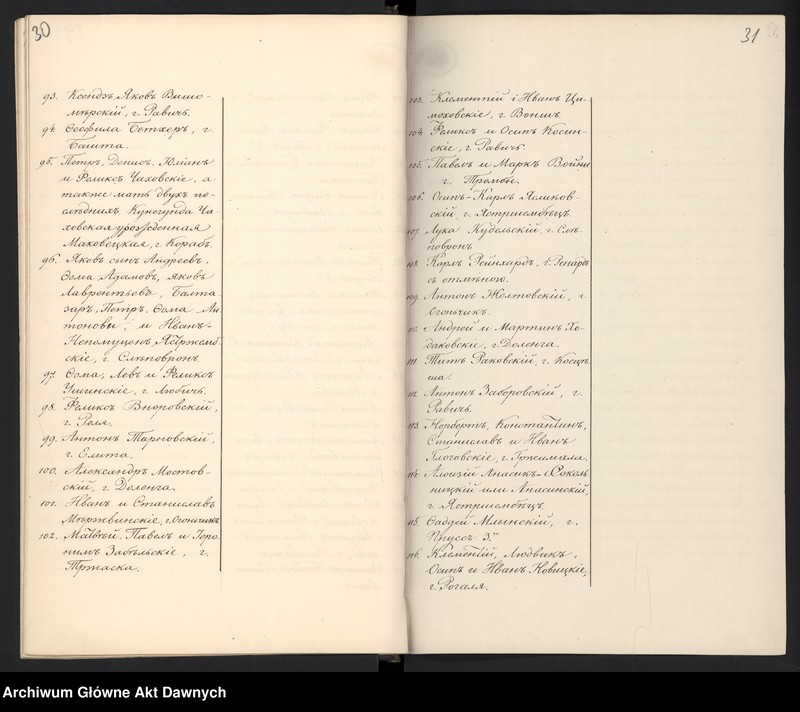 30
93. Ксендзъ Яковъ Вишо-
мѣрскій, г. Равичъ.
94. Ѳеофила Бетхеръ, г.
Башта.
95. Петръ, Денисъ, Юліанъ
и Феликсъ Чаховскіе, а
также мать двухъ по-
слѣднихъ Кунегунда Ча-
ховская урожденная
Маковецкая, г. Корабъ.
96. Яковъ сынъ Андреевъ,
Ѳома Адамовъ, Яковъ
Лаврентьевъ, Балта-
заръ, Петръ, Ѳома Ан-
тоновы, и Иванъ-
Непомуценъ Ястржемб-
скіе, г. Слѣповронъ.
97. Ѳома, Левъ и Феликсъ
Уминскіе, г. Любичъ.
98. Феликсъ Вноровскій,
г. Роля.
99. Антонъ Тарновскій,
г. Елита.
100. Александръ Мостов-
скій, г. Доленга.
101. Иванъ и Станиславъ
Мѣржвинскіе, г. Огончикъ
102. Матвѣй, Павелъ и Геро-
нимъ Забѣльскіе, г.
Тржаска.
31
103. Клементій і Иванъ Ци-
моховскіе, г. Вонжъ.
104. Феликсъ и Осипъ Косин-
скіе, г. Равичъ.
105. Павелъ и Маркъ Войни
г. Тромбы.
106. Осипъ-Карлъ Ясликов-
скій, г. Ястршембецъ.
107. Лука Кудельскій, г. Слѣ-
повронъ
108. Карлъ Рейнхардъ, г.
съ отмѣною.
109. Антонъ Желтовскій, г.
Огончикъ.
110. Андрей и Мартинъ Хо-
даковскіе, г. Доленга.
111. Титъ Раковскій, г. Косцѣ-
ша.
112. Антонъ Заборовскій, г.
Равичъ.
113. Норбертъ, Константинъ,
Станиславъ и Иванъ
Глоговскіе, г. Гржимала.
114. Алоизій Апасикъ-Соколь-
ницкій или Апасинскій,
г. Ястршембецъ.
115. Ѳаддей Млынскій, г.
Пруссъ 3.
116. Клементій, Людвикъ,
Осипъ и Иванъ Новицкіе,
г. Рогаля.
Archiwum Główne Akt Dawnych